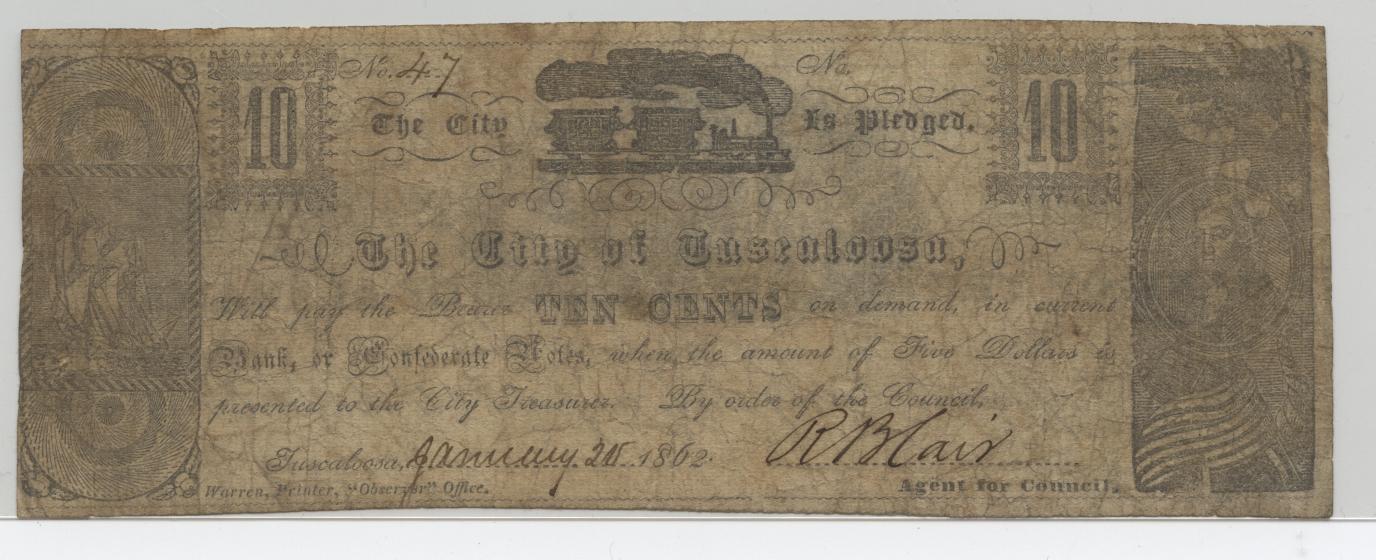 No. 47 No.
10 The City Is Pledged. 10
The City of Tuscaloosa,
Will pay the Bearer TEN CENTS on demand, in current
Bank, or Confederate Notes, when the amount of Five Dollars is
presented to the City Treasurer. By order of the Council,
Tuscaloosa, January 1862. R Blair
Warren, Printer, "Observer" Office. Agent for Council.